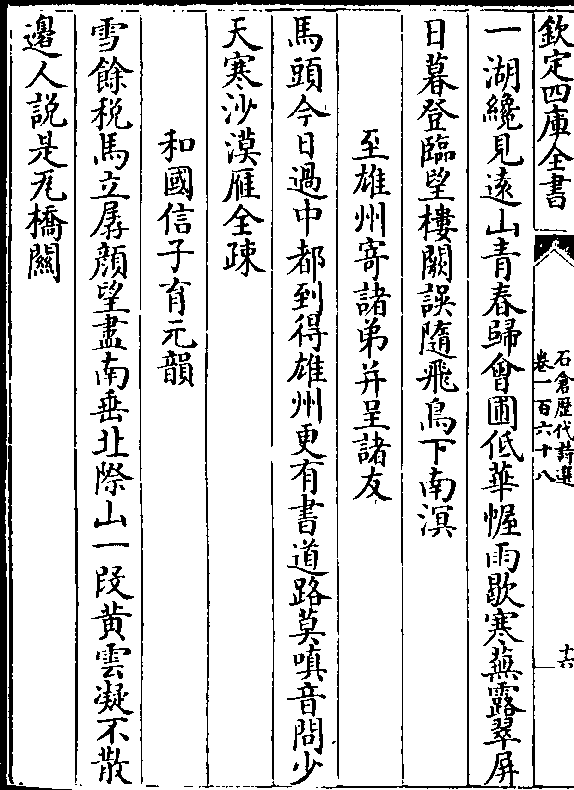 欽定四庫全書
石倉歴代詩選
卷一百六十八
十六
一湖纔見遠山青春歸㑹圃低華幄雨歇寒蕪露翠屏
日暮登臨望樓闕誤隨飛鳥下南溟
至雄州寄諸弟并呈諸友
馬頭今日過中都到得雄州更有書道路莫嗔音問少
天寒沙漠雁全疎
和國信子育元韻
雪餘稅馬立孱顔望盡南垂北際山一段黄雲凝不散
邊人說是瓦橋關